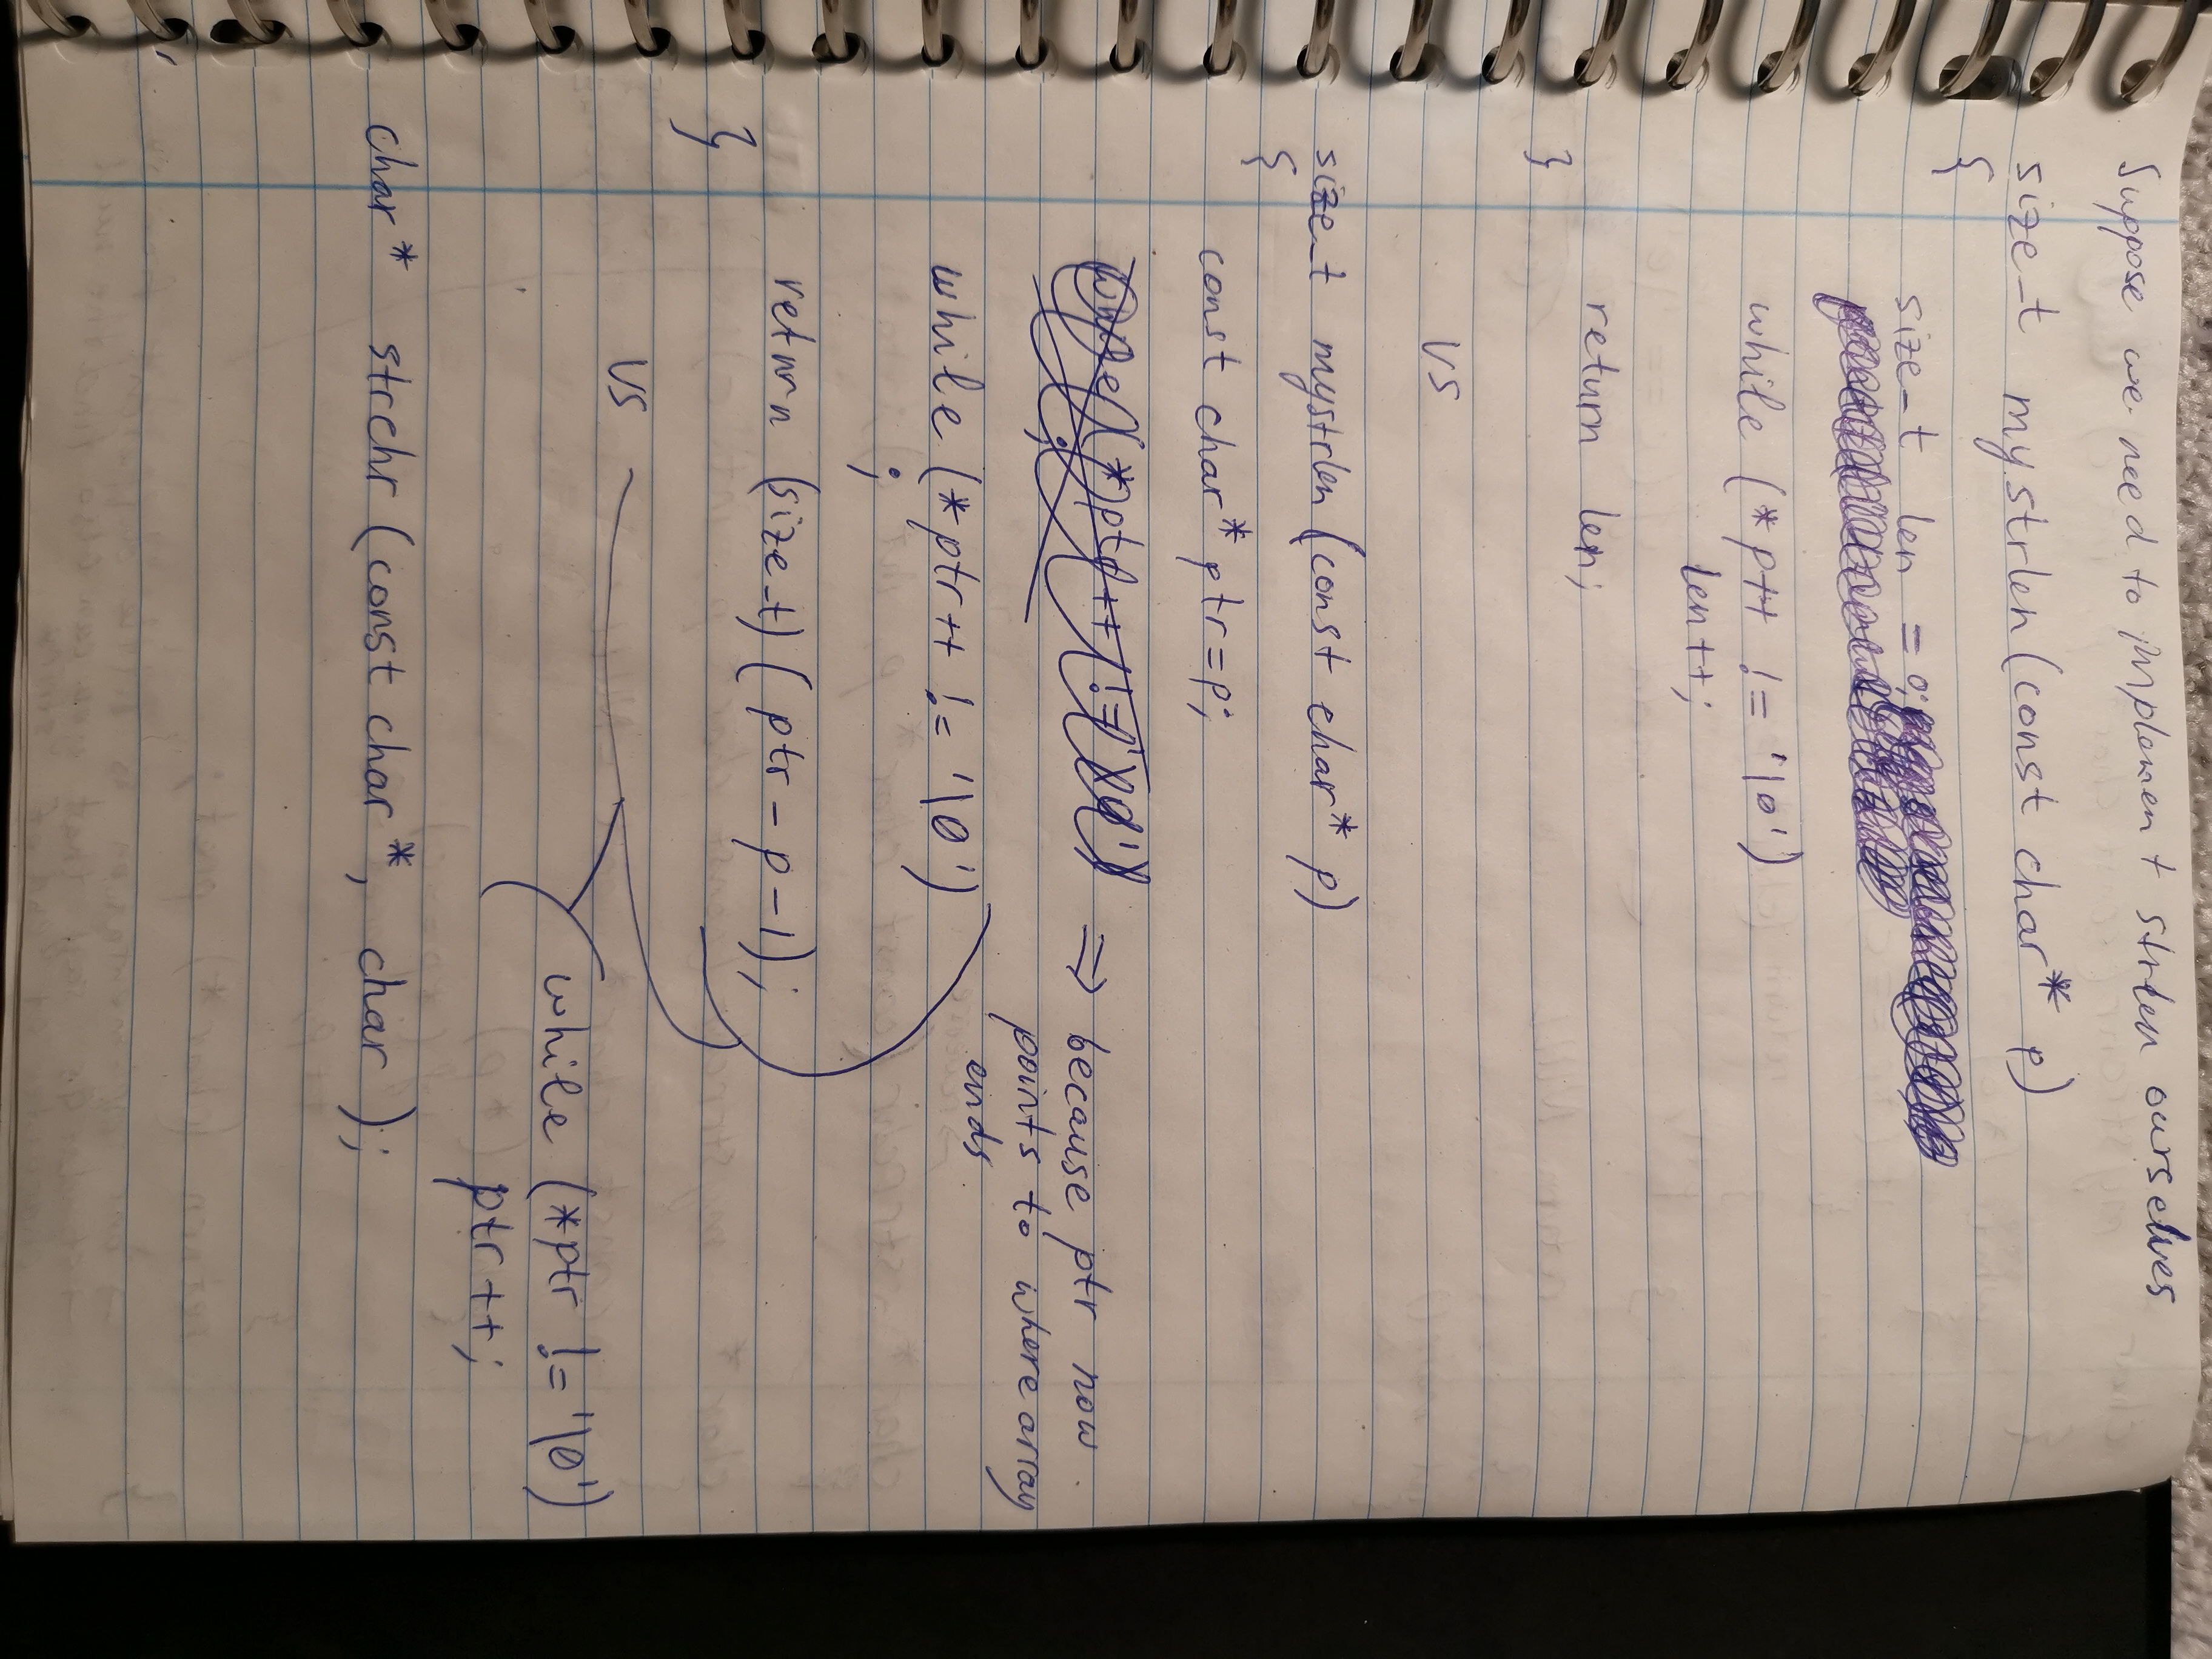 Suppose we need to implement strlen ourselves
size_t mystrlen(const char* p)
{
size_t len = 0;
while (*p++ != '\0')
len++;
return len;
}
vs
size_t mystrlen (const char* p)
{
const char* ptr=p;
while (*ptr++ != '\0') => because ptr now
; points to where array
ends
while (*ptr++ != '\0')
;
return (size_t) (ptr-p-1);
}
vs
while (*ptr != '\0')
ptr++;
char* strchr (const char*, char );